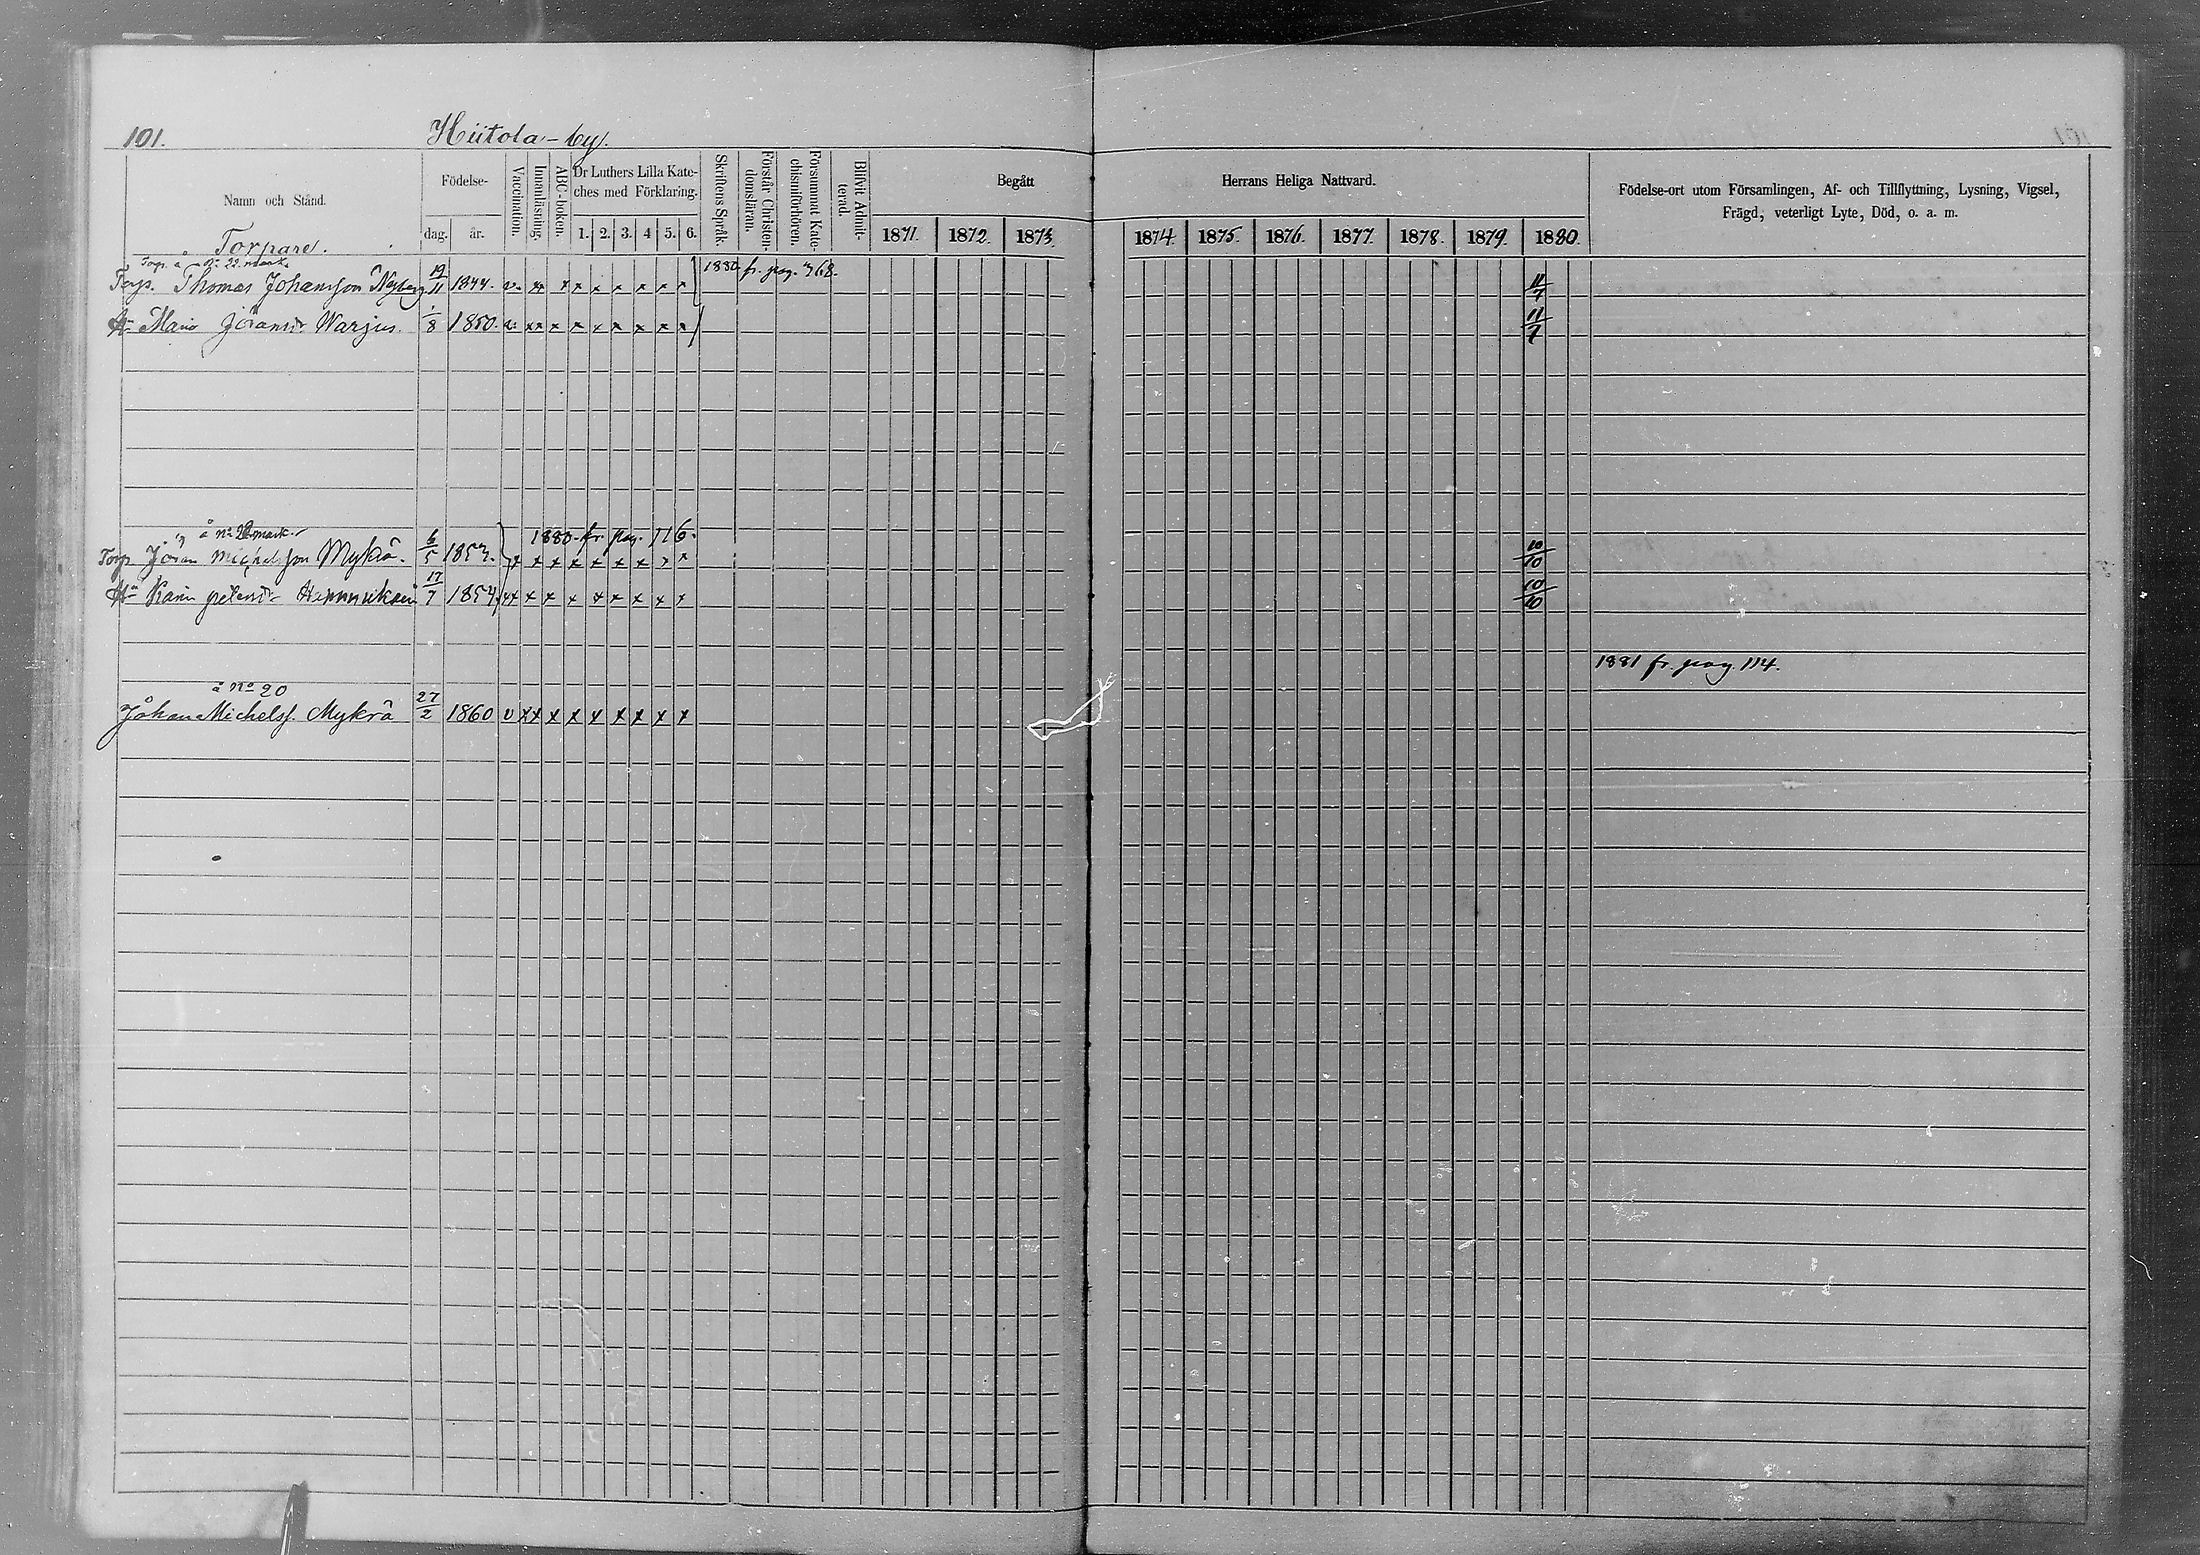 101.
Hiitola-by.
Namn och Stånd.
Födelse-
dag.
år.
Vaccination.
Innanläsning.
ABC-boken.
Dr Luthers Lilla Kate-
ches med Förklaring.
1. 2. 3. 4 5. 6.
Skriftens Språk.
Förstår Christen-
domsläran.
Försummat Kate-
chismiförhören.
Blifvit Admit-
terad.
Begått
Herrans Heliga Nattvard.
1871. 1872. 1873. 1874. 1875. 1876. 1877. 1878. 1879. 1880.
Födelse-ort utom Församlingen, Af- och Tillflyttning, Lysning, Vigsel,
Frägd, veterligt Lyte, Död, o. a. m.
Torpare.
Torp. å No 22 mark.
1880 fr. pag. 368.
Torp. Thomas Johansson Nyberg 19/11 1844. v. xx x x x x x x x 11/7
H:u Maria Jöransdr Warjus. 1/8 1850. v. xx x x x x x x x 11/7
å No mark.
1880 fr. pag. 116.
Torp. Jöran Michelsson Mykrä. 6/5 1853. x x x x x x x x x 10/10
H:u Karin petersdr 17/7 1854. xx x x x x x x x x 10/10
1881 fr. pag. 114.
å No 20
Johan Michelss. Mykrä 27/2 1860 v xx x x x x x x x